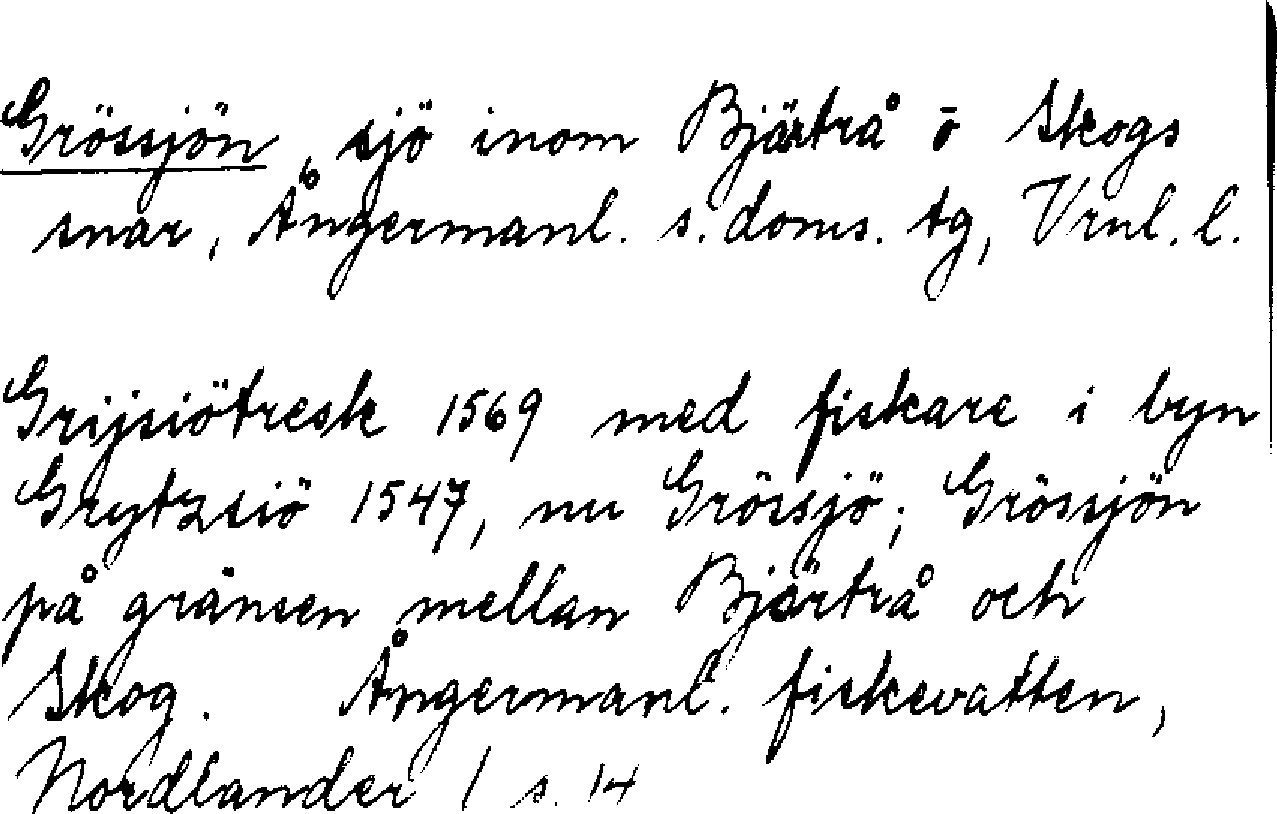 Grössjön, sjö inom Bjärtrå ō Skogs
snar, Ångermanl. s. doms. tg, Vrnl. l.
Grijsiötresk 1569 med fiskare i byn
Grytzsiö 1547, nu Grössjö; Grössjön
på gränsen mellan Bjärtrå och
Skog. Ångermanl. fiskevatten,
Nordlander 1 s. 14